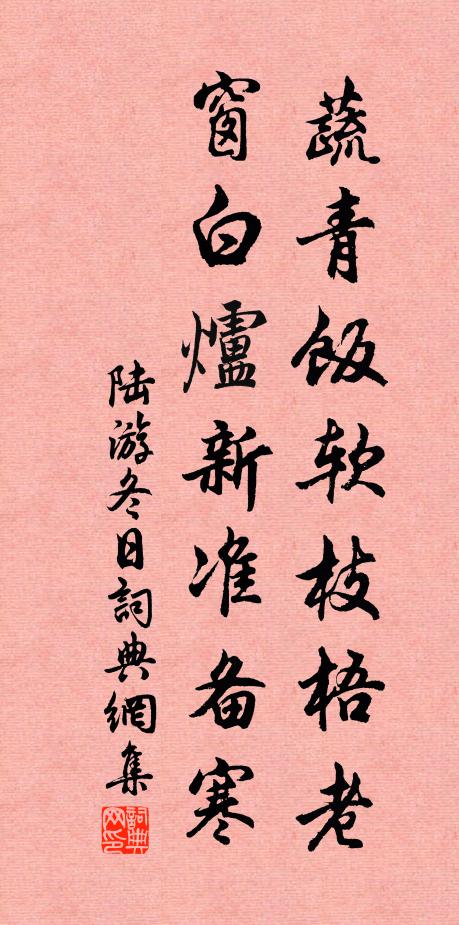 蔬青饭软枝梧老
窗白爐新准备寒
陆游冬日詞典網集
詞典网印